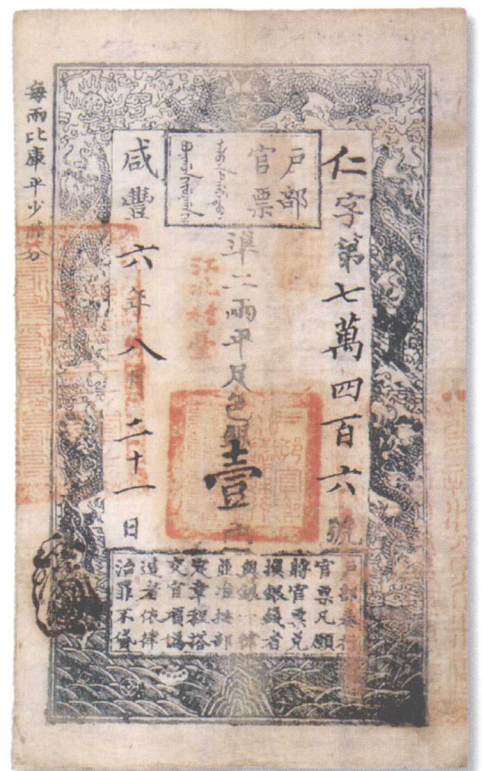 仁字第七萬四百六號
戶部
官票
準二兩平足色銀壹兩
咸豐六年八月二十一日
戶部奏行
官票凡願
將官票兌
換銀錢者
與銀一律
並准按部
定章程搭
交官項偽
造者依律
治罪不貸
每兩比庫平少分